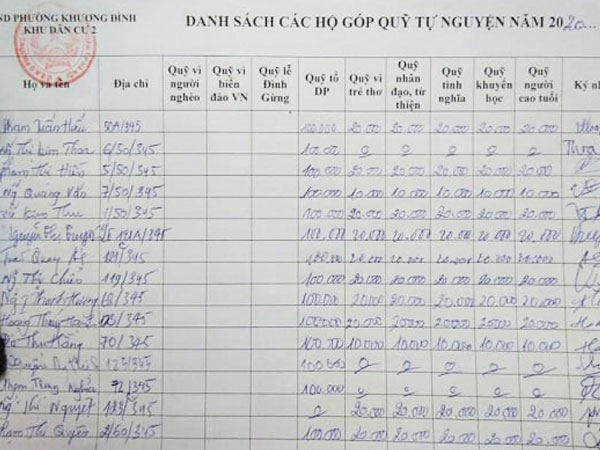 ND PHƯỜNG KHƯƠNG ĐÌNH
KHU DÂN CƯ 2
DANH SÁCH CÁC HỘ GÓP QUỸ TỰ NGUYỆN NĂM 2020...
Họ và tên Địa chỉ Quỹ vì người nghèo Quỹ vì biển đảo VN Quỹ lễ Đình Gừng Quỹ tổ DP Quỹ vì trẻ thơ Quỹ nhân đạo, từ thiện Quỹ tình nghĩa Quỹ khuyến học Quỹ người cao tuổi Ký nh
Phạm Tuấn Hiếu 50A/345 100.000 20.000 20.000 20.000 20.000 20.000
Ng Thị Kim Thoa 6/50/345 100.000 0 0 0 0 0 Thoa
Phạm Thị Hiền 5/50/345 100.000 20.000 20.000 20.000 20.000 20.000
Ng Quang Vảo 7/50/345 100.000 10.000 10.000 10.000 10.000 10.000
Vũ Kim Thu 1/50/345 100.000 20.000 20.000 20.000 20.000 20.000
Nguyễn 191A/345 100.000 20.000 20.000 20.000 20.000 20.000
121/345 100.000 20.000 20.000 20.000 20.000 20.000
Ng Thị Chiến 119/345 100.000 20.000 20.000 20.000 20.000 20.000
Thanh Hương 68/345 100.000 20.000 20.000 20.000 20.000 20.000
Hoàng Thuý 100.000 20.000 20.000 20.000 20.000 20.000
Thu Hằng 70/345 100.000 10.000 10.000 10.000 10.000 10.000
125/345 100.000 0 0 0 0 0
Phạm Trung Nghĩa 72/345 100.000 0 0 0 0 0
Ng Thị Nguyệt 123/345 0 20.000 20.000 20.000 20.000 20.000
Phạm Thị Quyên 2/50/345 100.000 20.000 20.000 20.000 20.000 20.000